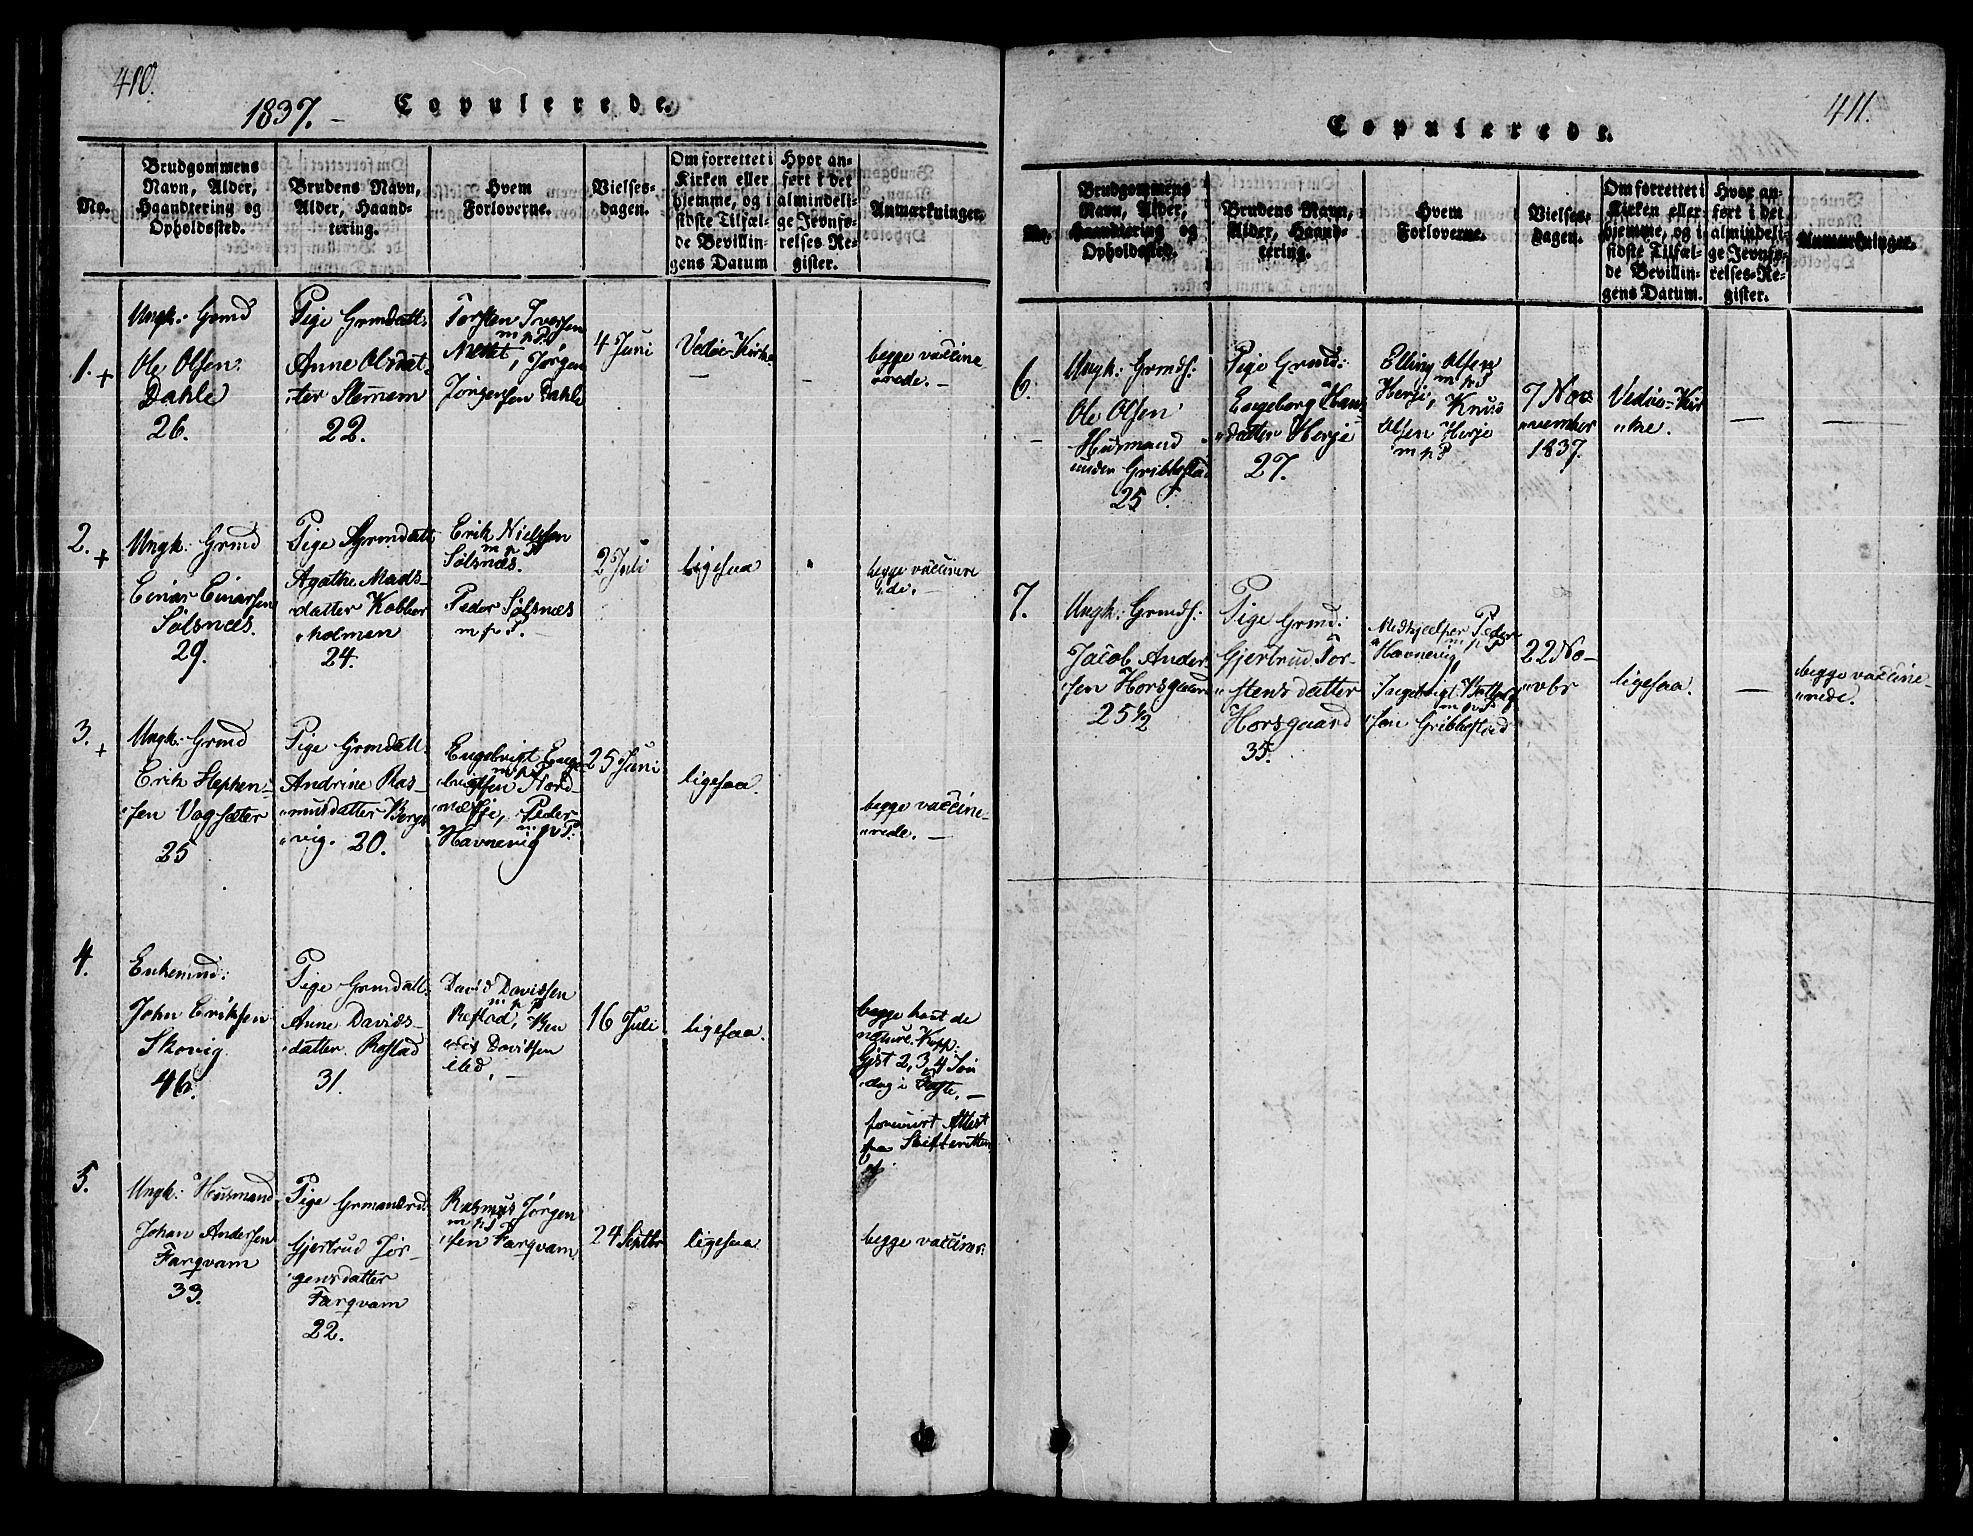 410.
1837. –
Copulerede.
No.
Brudgommens
Navn, Alder,
Haandtering og
Opholdssted.
Brudens Navn,
Alder, Haand-
tering.
Hvem
Forloverne.
Vielses-
dagen.
Om forrettet i
Kirken eller
hjemme, og i
sidste Tilfæl-
de Bevillin-
gens Datum
Hvor an-
ført i det
almindeli-
ge Jevnfø-
relses-Re-
gister.
Anmærkninger.
1. +
Ungk: Grmd
Ole Olsen
Dahle
26.
Pige Grmdatt:
Anne Olsdat-
ter Stemem
22.
Torsten Iversen
m p P
, Jørgen
Jørgensen Dahle
4 Juni
Vedøe-Kirke
–
–
begge vaccine
rede. –
2. +
Ungk: Grmd
Einar Einarsen
Sølsnæs.
29.
Pige Grmdatt
Agathe Mads-
datter Kobber
holmen
24.
Erik Nielsen
m p P
Sølsnæs.
Peder Sølsnæs
m p P. –
2 Juli
ligesaa
"
begge vaccinere
de. –
3. +
Ungk: Grmd
Erik Stephen-
sen Vagsæter
25
Pige Grmdatt.
Andrine Ras-
musdatter Berg
vig. 20.
Engebrigt Enge
m p P
brigtsen Nord-
næsje, Peder
Havnevig m p P:
25 Juni
ligesaa.
begge vaccine-
rede. –
4.
Enkemnd:
John Eriksen
Skovig.
46.
Pige Grmdatt:
Anne Davids-
datter Røstad
31.
David Davidsen
m p P
Røstad, Ben
Davidsen
ibid. –
16 Juli
ligesaa.
begge havt de
naturl. Kopp:
Gjst 2, 3 og 4 Søn
dag i Faste. –
forevist Attest
fra Skifteretten
5.
Ungk: Husmand
Johan Andersen
Farqvam
33.
Pige Grmandsd.
Gjertrud Jør-
gensdatter
Farqvam
22.
Rasmus Jørgen
m p P
sen Farqvam
24 Septbr
ligesaa
begge vacciner:
411.
Copulerede.
No.
Brudgommens
Navn, Alder,
Haandtering og
Opholdssted.
Brudens Navn,
Alder, Haand-
tering.
Hvem
Forloverne.
Vielses-
dagen.
Om forrettet i
Kirken eller
hjemme, og i
sidste Tilfæl-
de Bevillin-
gens Datum.
Hvor an-
ført i det
almindeli-
ge Jevnfø-
relses-Re-
gister.
Anmærkninger.
6.
–
Ungk: Grmds:
Ole Olsen
Husmand
under Gribbestad
25
Pige Grmd:
Engeborg Hans
datter Herje
27.
Elling Olsen
m p P
Herje, Knud
Olsen Herje
m p P
7 No-
vember
1837.
Vedøe-Kir
ke.
–
–
7.
Ungk: Grmds:
Jacob Ander-
sen Horsgaard
25 1/2
Pige Grmd:
Gjertrud Tor-
stensdatter
Horsgaard
35.
Medhjælper Peder
m p P
Havnevig
Ingebrigt
m p P
sen Gribbestad
22 No-
vbr
ligesaa.
–
begge vaccine-
rede.